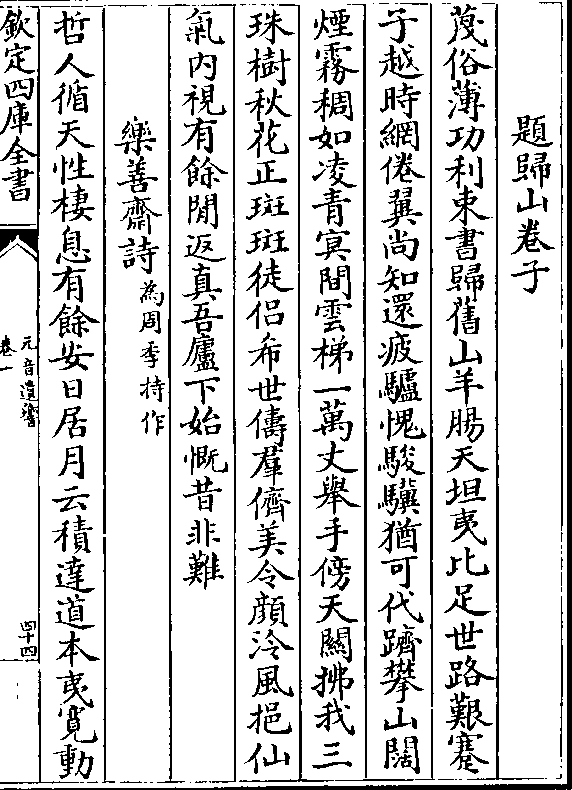 題歸山卷子
蔑俗薄功利束書歸舊山羊腸天坦夷比足世路艱蹇
子越時網倦翼尚知還疲驢愧駿驥猶可代躋攀山闊
煙霧稠如凌青冥間雲梯一萬丈舉手傍天關拂我三
珠樹秋花正斑斑徒侣希世儔羣儕美令顔泠風挹仙
氣内視有餘閒返真吾廬下始慨昔非難
樂善齋詩為周季持作
哲人循天性棲息有餘安日居月云積達道本夷寛動
欽定四庫全書
元音遺響
卷一
四十四